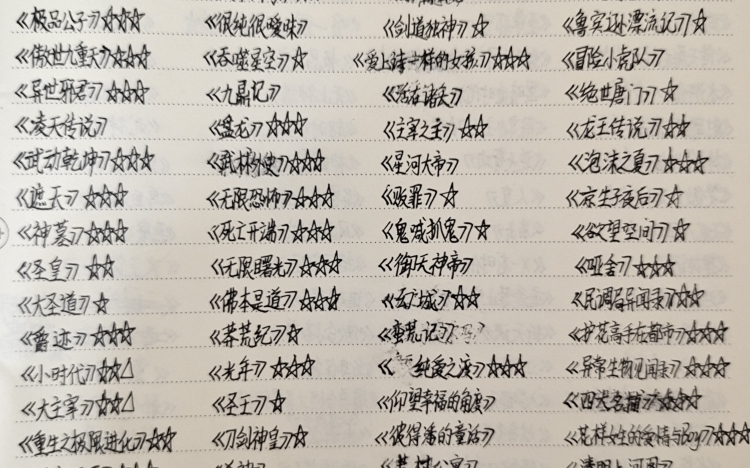 《极品公子》☆☆☆ 《很纯很暧昧》 《剑道独神》☆ 《鲁宾逊漂流记》☆
《傲世九重天》☆☆☆ 《吞噬星空》☆ 《爱上一样的女孩》☆☆☆ 《冒险小虎队》
《异世邪君》☆☆☆ 《九鼎记》 《绝世唐门》☆
《凌天传说》 《盘龙》☆☆☆ 《主宰之王》☆☆ 《龙王传说》☆☆
《武动乾坤》☆☆☆ 《武林外史》☆☆☆ 《星河大帝》 《泡沫之夏》☆☆☆
《遮天》☆☆☆ 《无限恐怖》☆☆☆ 《贩罪》☆ 《凉生子夜后》☆
《神墓》☆☆☆ 《死亡开端》☆☆☆ 《鬼喊抓鬼》☆ 《欲望空间》☆
《圣皇》☆☆ 《无限曙光》☆☆☆ 《御天神帝》 《哑舍》☆☆☆
《大圣道》☆ 《佛本是道》☆☆☆ 《玄城》☆☆ 《民调局异闻录》☆☆
《爵迹》☆☆☆ 《莽荒纪》☆ 《蛮荒记》 《护花高手在都市》☆☆☆
《小时代》☆☆△ 《光年》☆☆☆ 《纯爱之渡》☆☆☆ 《异常生物见闻录》☆☆☆
《大主宰》☆☆△ 《圣王》☆ 《仰望幸福的角度》 《四大名捕》☆☆☆
《重生之极限进化》☆☆ 《刀剑神皇》☆ 《彼得潘的童话》 《花样女生的爱情与Boy》☆☆☆